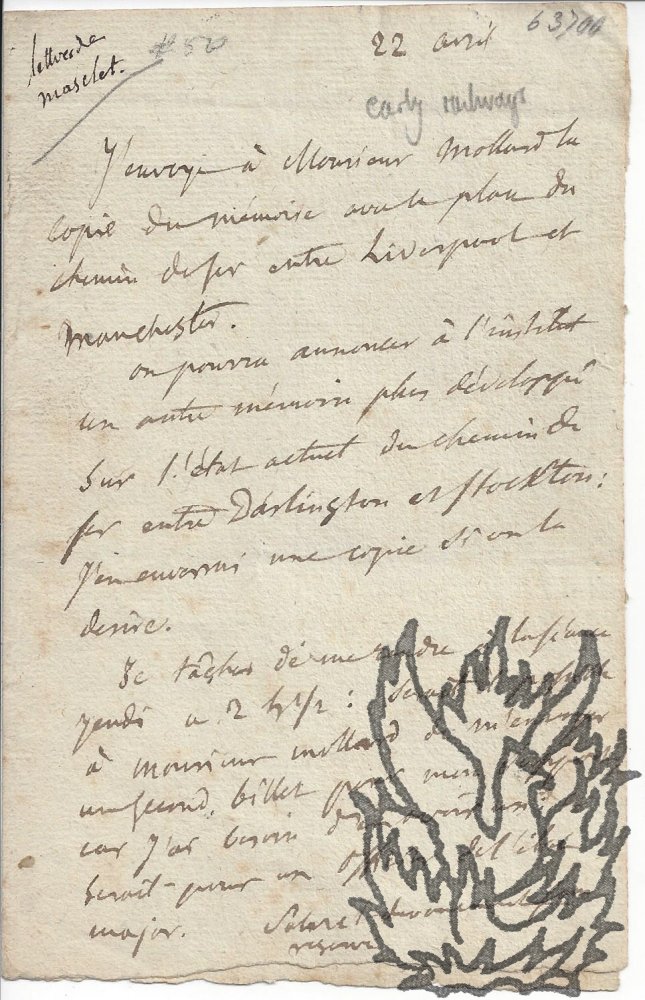 lettres de
maslet.
# 50
22 avril
63/06
early railways
J'envoye à Monsieur Mollard la
copie du mémoire avec le plan du
chemin de fer entre Liverpool et
Manchester.
on pourra annoncer à l'institut
un autre mémoire plus développé
sur l'état actuel du chemin de
fer entre Darlington et Stockton:
J'en enverrai une copie si on la
desire.
Je tâcherai de me rendre à la séance
jeudi a 2 hs 1/2 :
à monsieur mollard de m'envoyer
un second billet pour
car j'ai besoin
seroit pour un officier de l'état
major. Salut